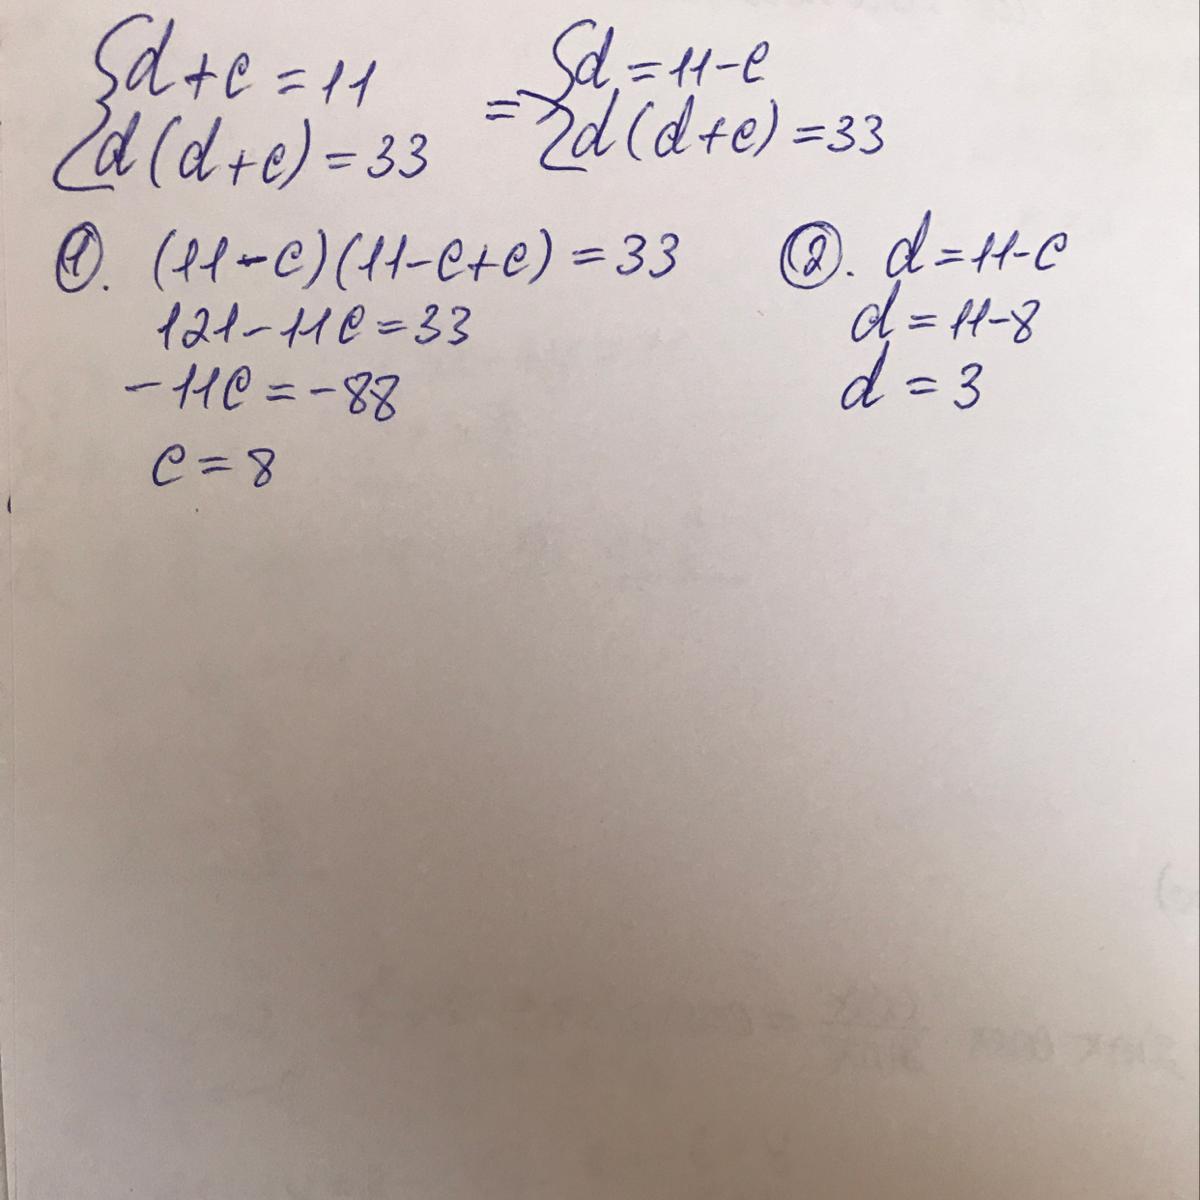 {d+c=11
{d(d+c)=33
= {d=11-c
{d(d+c)=33
①. (11-c)(11-c+c)=33
121-11c=33
-11c=-88
c=8
②. d=11-c
d=11-8
d=3